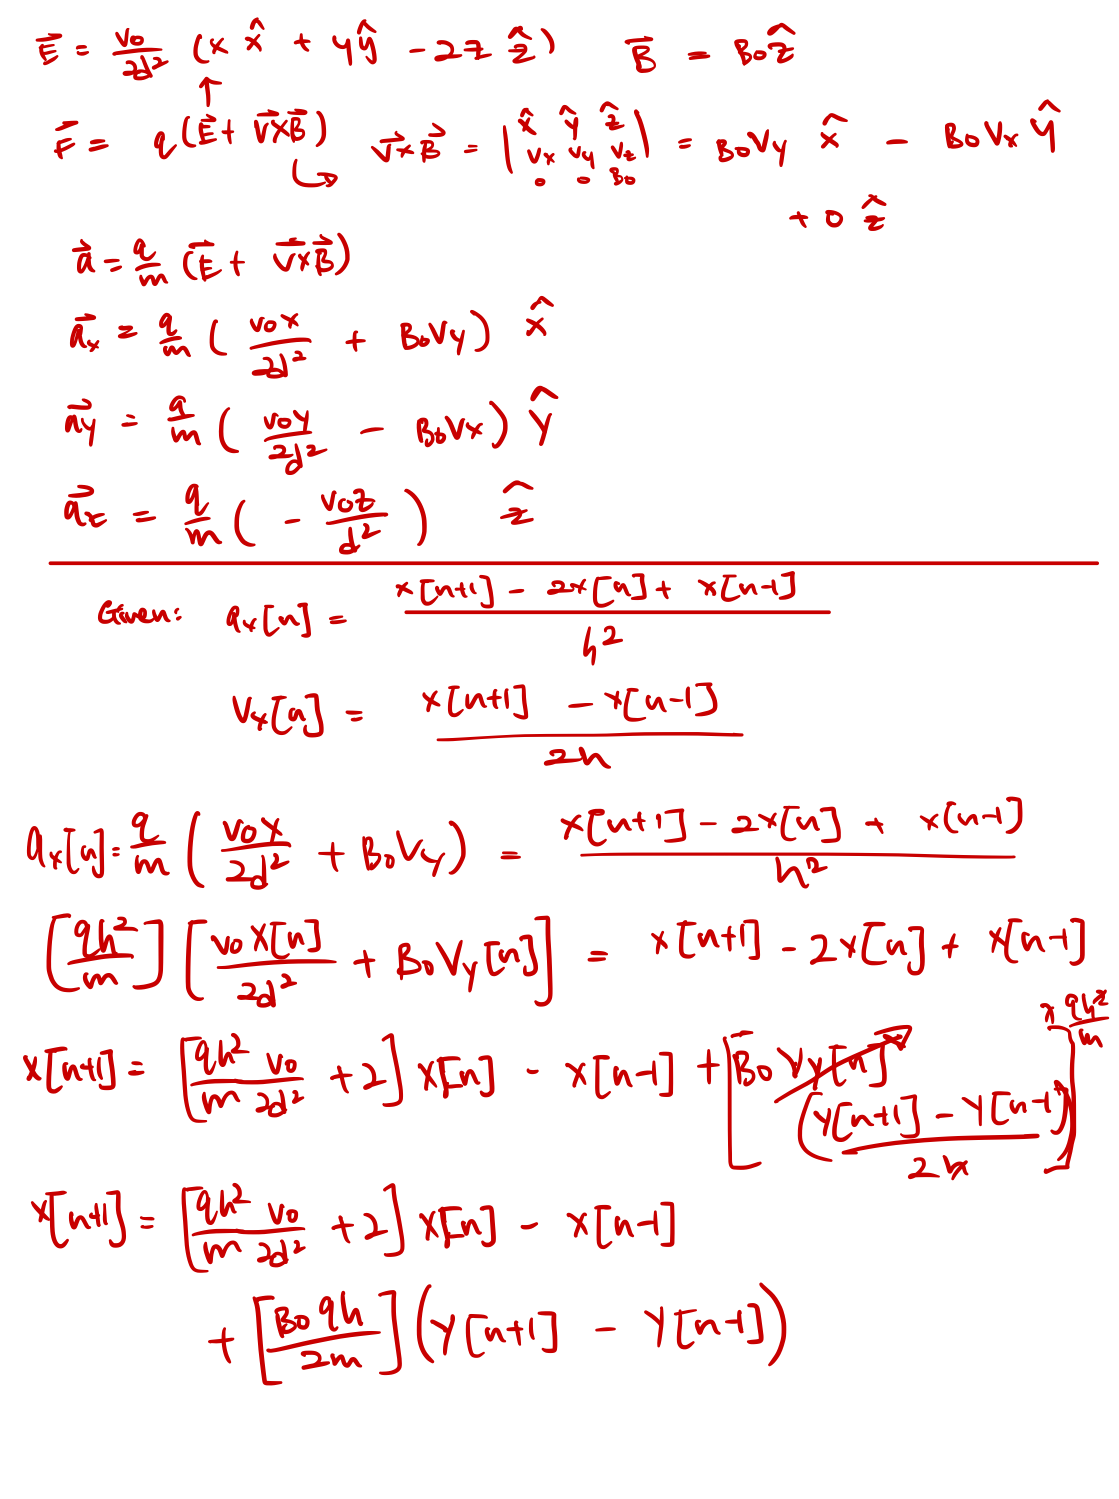 E⃗ = V₀/2d² (x x̂ + y ŷ − 2z ẑ)   B⃗ = B₀ẑ
F⃗ = q (E⃗ + V⃗×B⃗)   V⃗×B⃗ = | x̂ ŷ ẑ ; Vx Vy Vz ; 0 0 B₀ | = B₀Vy x̂ − B₀Vx ŷ
+ 0 ẑ
a⃗ = q/m (E⃗ + V⃗×B⃗)
a⃗x = q/m ( V₀x/2d² + B₀Vy) x̂
a⃗y = q/m ( V₀y/2d² − B₀Vx) ŷ
a⃗z = q/m ( − V₀z/d² ) ẑ
Given: ax[n] = (x[n+1] − 2x[n] + x[n−1]) / h²
Vx[n] = (x[n+1] − x[n−1]) / 2h
ax[n] = q/m ( V₀x/2d² + B₀Vy) = (x[n+1] − 2x[n] + x(n−1)) / h²
[qh²/m] [V₀x[n]/2d² + B₀Vy[n]] = x[n+1] − 2x[n] + x[n−1]
x[n+1] = [qh²/m V₀/2d² + 2] x[n] − x[n−1] + [B₀ Vy[n] ((y[n+1] − y[n−1]) / 2h)] × qh²/m
x[n+1] = [qh²/m V₀/2d² + 2] x[n] − x[n−1]
+ [B₀qh/2m] (y[n+1] − y[n−1])